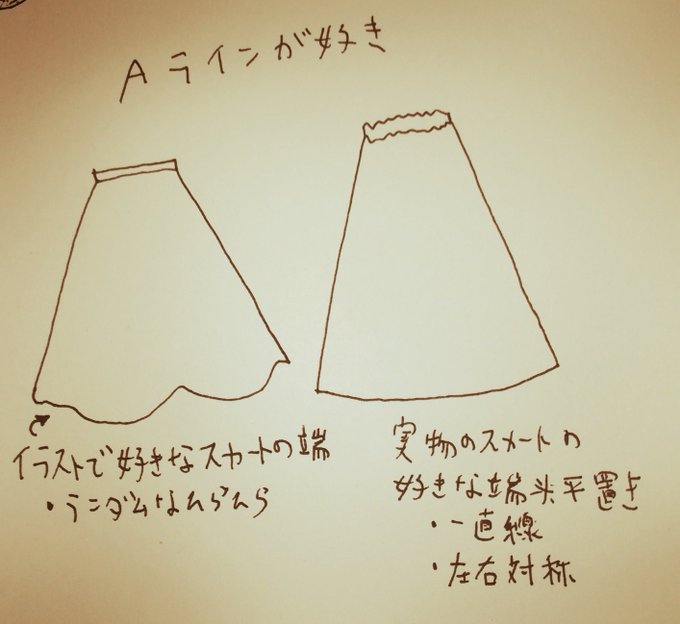 Aラインが好き
イラストで好きなスカートの端
・ランダムなひらひら
実物のスカートの
好きな端※平置き
・一直線
・左右対称